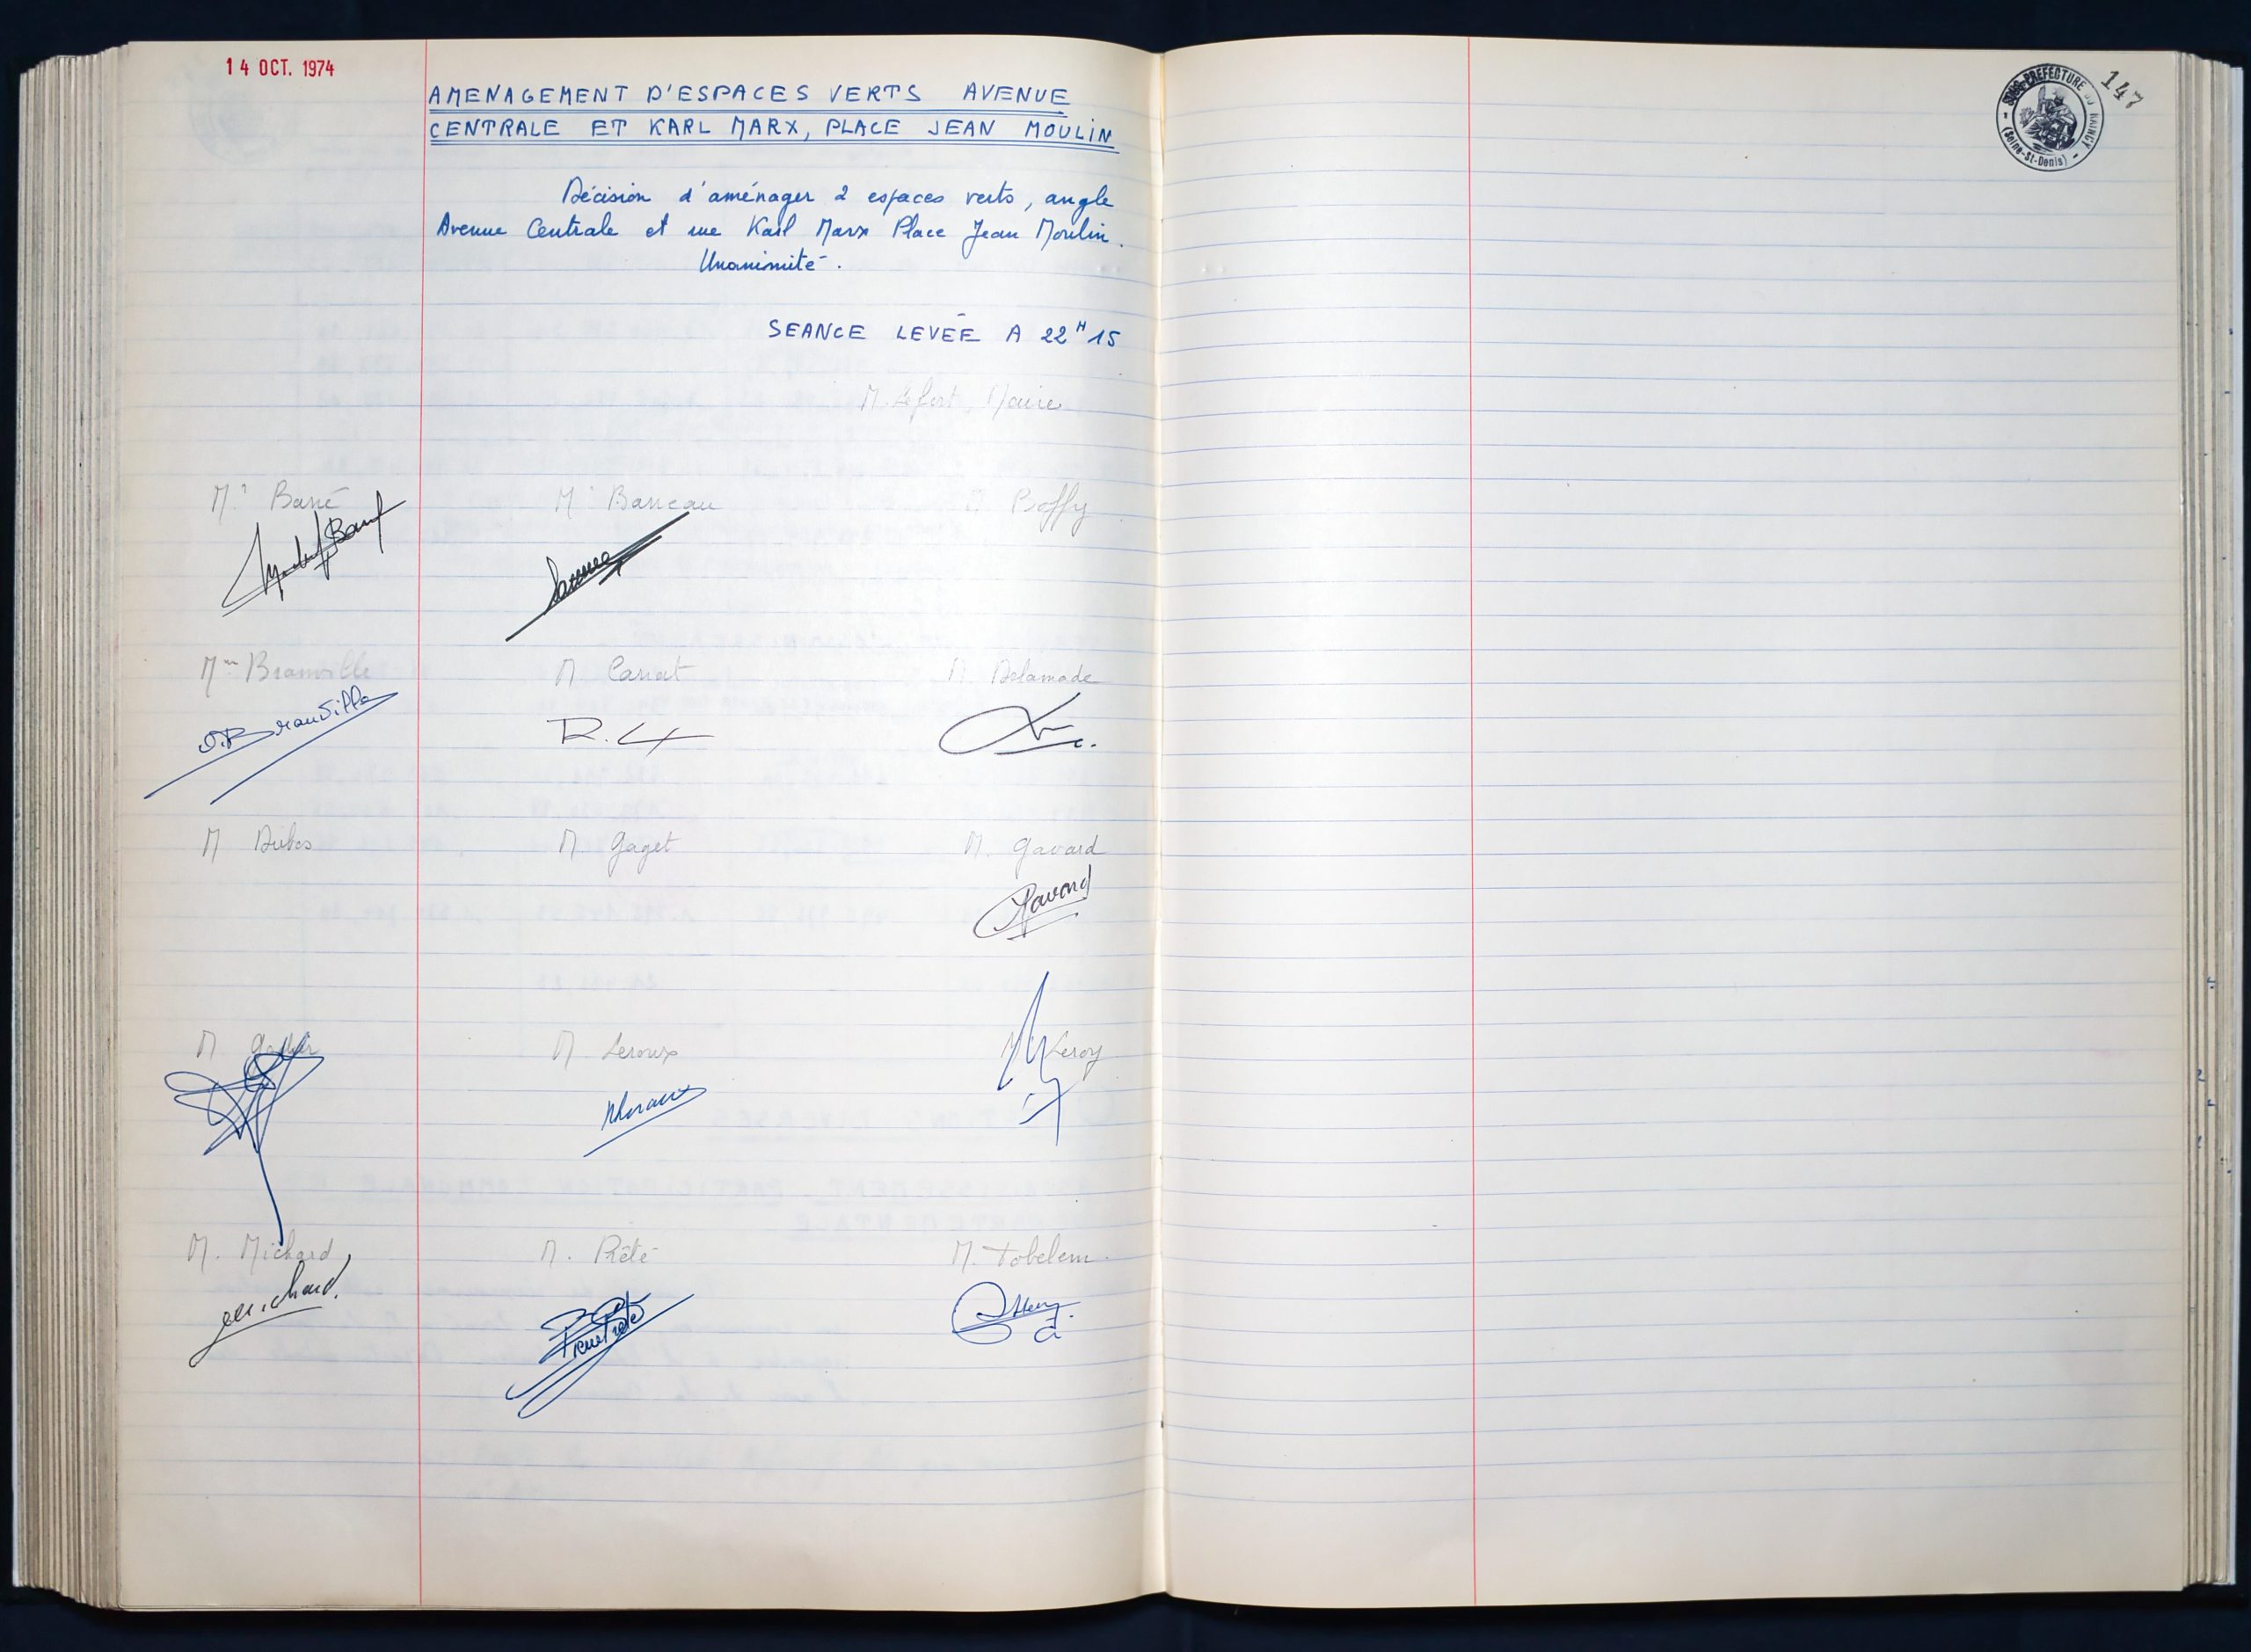 14 OCT. 1974
AMENAGEMENT D'ESPACES VERTS AVENUE
CENTRALE ET KARL MARX, PLACE JEAN MOULIN
Décision d'aménager 2 espaces verts, angle
Avenue Centrale et rue Karl Marx Place Jean Moulin.
Unanimité.
SEANCE LEVÉE A 22H15
M. Lefort, Maire
Barré M. Barreau M. Boffy
Mme Branville M Carrat M Delamade
D.Branville R.
M M Gaget M. Gavard
Gavard
M M. Leroux M. Leroy
M. Michard M. Prêté M. Tobelem
Michard.
SOUS-PREFECTURE DU RAINCY
(Seine-St-Denis)
147